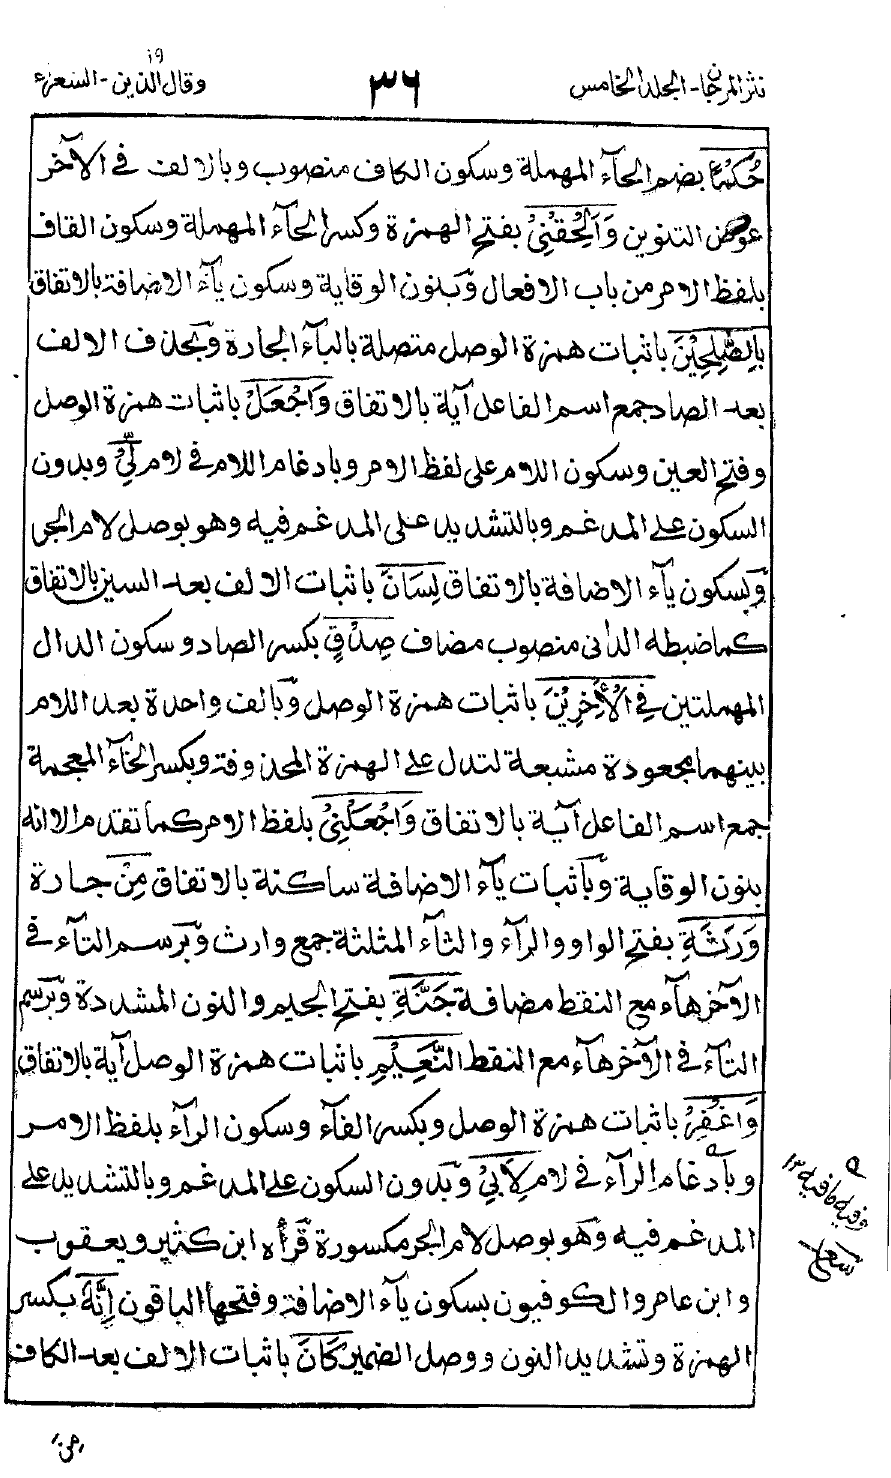 نثر المرجان - المجلد الخامس
٣٦
وقال الذين ١٩ - الشعراء
حُكْمًا بضم الحآء المهملة وسكون الكاف منصوب وبالالف في الآخر
عوض التنوين وَاَلْحِقْنِيْ بفتح الهمزة وكسر الحآء المهملة وسكون القاف
بلفظ الامر من باب الافعال وبنون الوقاية وسكون يآء الاضافة بالاتفاق
بِالصّٰلِحِيْنَ باثبات همزة الوصل متصلة بالبآء الجارة وبحذف الالف
بعد الصاد جمع اسم الفاعل آية بالاتفاق وَاجْعَلْ باثبات همزة الوصل
وفتح العين وسكون اللام على لفظ الامر وبادغام اللام في لام لِّيْ وبدون
السكون على المدغم وبالتشديد على المدغم فيه وهو بوصل لام الجر
وبسكون يآء الاضافة بالاتفاق لِسَانَ باثبات الالف بعد السين بالاتفاق
كما ضبطه الدانى منصوب مضاف صِدْقٍ بكسر الصاد وسكون الدال
المهملتين فِي الْاٰخِرِيْنَ باثبات همزة الوصل وبالف واحدة بعد اللام
بينهما مجعودة مشبعة لتدل على الهمزة المحذوفة وبكسر الخآء المعجمة
جمع اسم الفاعل آية بالاتفاق وَاجْعَلْنِيْ بلفظ الامر كما تقدم الا انه
بنون الوقاية وباثبات يآء الاضافة ساكنة بالاتفاق مِنْ جارة
وَرَثَةِ بفتح الواو والرآء والثآء المثلثة جمع وارث وبرسم التآء في
الآخر هآء مع النقط مضافة جَنَّةِ بفتح الجيم والنون المشددة وبرسم
التآء في الآخر هآء مع النقط النَّعِيْمِ باثبات همزة الوصل آية بالاتفاق
وَاغْفِرْ باثبات همزة الوصل وبكسر الفآء وسكون الرآء بلفظ الامر
وبادغام الرآء في لام لِاَبِيْ وبدون السكون على المدغم وبالتشديد على
المدغم فيه وهو بوصل لام الجر مكسورة قرأه ابن كثير ويعقوب
وابن عامر والكوفيون بسكون يآء الاضافة وفتحها الباقون اِنَّهٗ بكسر
الهمزة وتشديد النون ووصل الضمير كَانَ باثبات الالف بعد الكاف
وفيه ما فيه ١٢